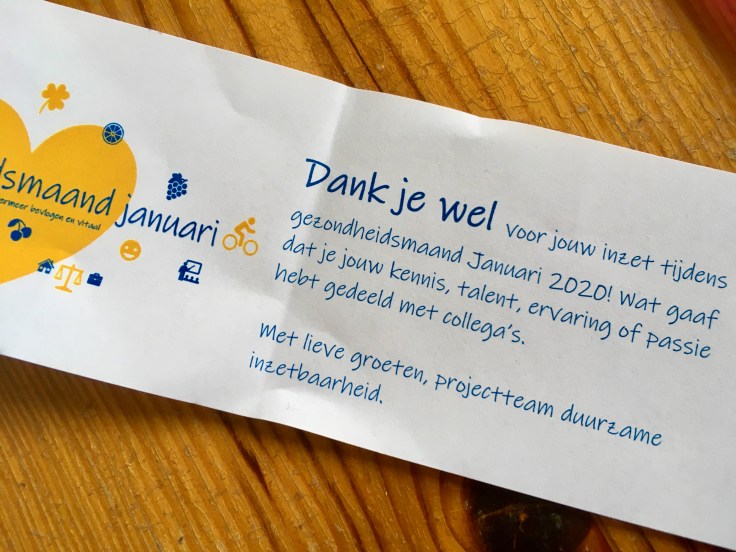 dsmaand
ermeer bevlogen en vitaal
januari
Dank je wel voor jouw inzet tijdens
gezondheidsmaand Januari 2020! Wat gaaf
dat je jouw kennis, talent, ervaring of passie
hebt gedeeld met collega's.
Met lieve groeten, projectteam duurzame
inzetbaarheid.